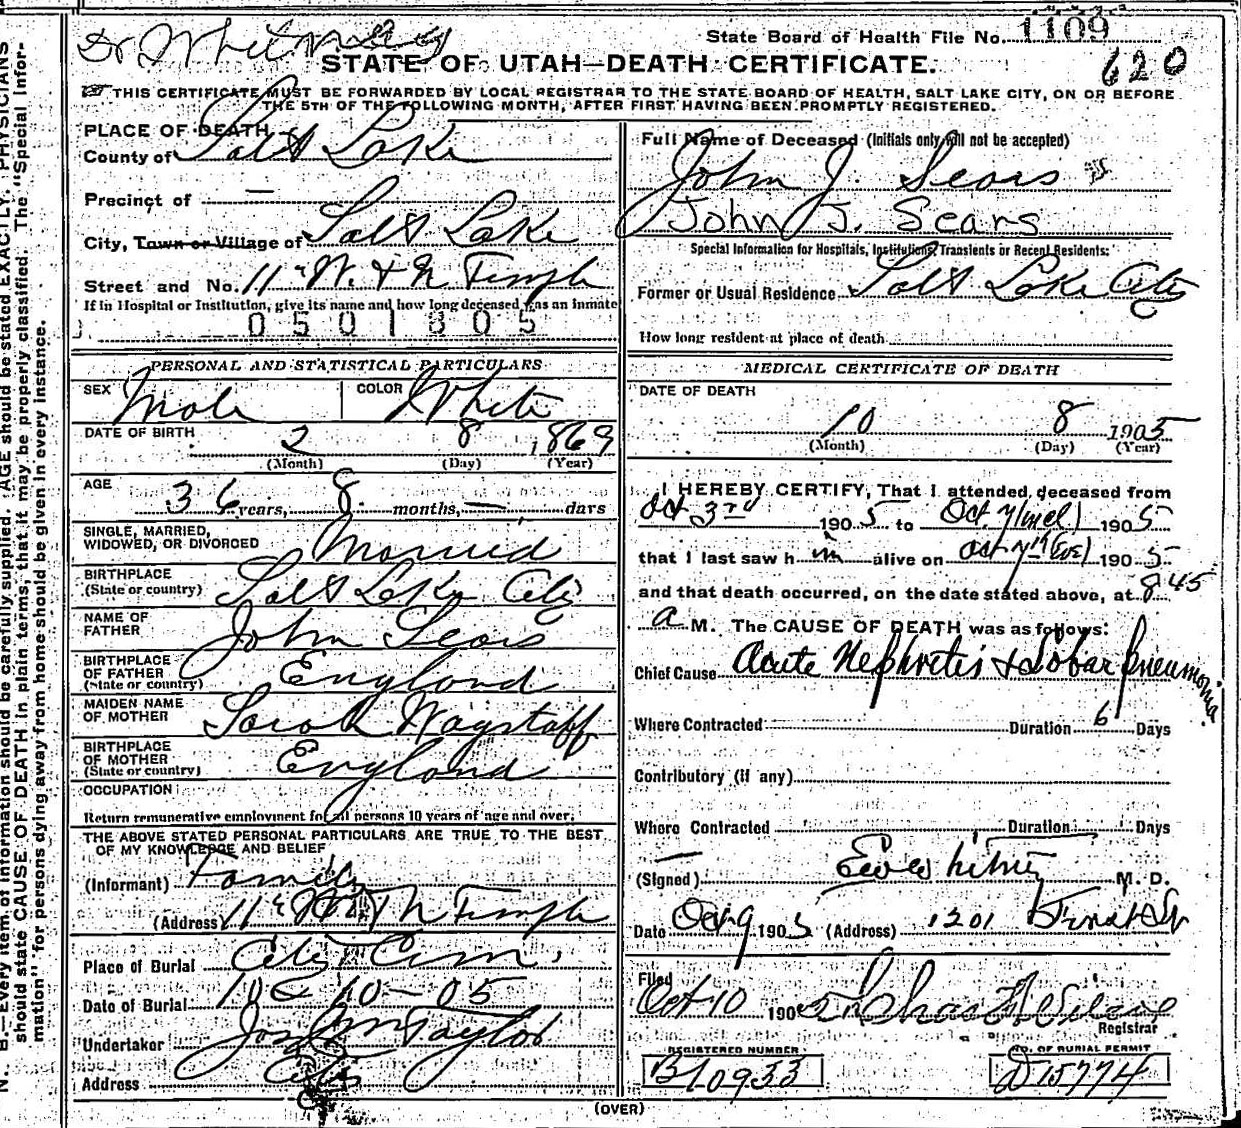 Dr Whitney
State Board of Health File No. 1109
620
STATE OF UTAH—DEATH CERTIFICATE.
THIS CERTIFICATE MUST BE FORWARDED BY LOCAL REGISTRAR TO THE STATE BOARD OF HEALTH, SALT LAKE CITY, ON OR BEFORE
THE 5TH OF THE FOLLOWING MONTH, AFTER FIRST HAVING BEEN PROMPTLY REGISTERED.
PLACE OF DEATH
County of Salt Lake
Precinct of —
City, Town or Village of Salt Lake
Street and No. 11th W. & N Temple
If in Hospital or Institution, give its name and how long deceased was an inmate
0501805
PERSONAL AND STATISTICAL PARTICULARS
SEX Male COLOR White
DATE OF BIRTH 2 8 1869
(Month) (Day) (Year)
AGE
36 years, 8 months, — days
SINGLE, MARRIED,
WIDOWED, OR DIVORCED Married
BIRTHPLACE
(State or country) Salt Lake City
NAME OF
FATHER John Sears
BIRTHPLACE
OF FATHER
(State or country) England
MAIDEN NAME
OF MOTHER Sarah Wagstaff
BIRTHPLACE
OF MOTHER
(State or country) England
OCCUPATION
Return remunerative employment for all persons 10 years of age and over.
THE ABOVE STATED PERSONAL PARTICULARS ARE TRUE TO THE BEST
OF MY KNOWLEDGE AND BELIEF
(Informant) Family
(Address) 11th W & N Temple
Place of Burial City Cem.
Date of Burial 10-10-05
Undertaker Jos Wm Taylor
Address City
Full Name of Deceased (Initials only will not be accepted)
John J. Sears
John J. Sears
Special Information for Hospitals, Institutions, Transients or Recent Residents:
Former or Usual Residence Salt Lake City
How long resident at place of death
MEDICAL CERTIFICATE OF DEATH
DATE OF DEATH
10 8 1905
(Month) (Day) (Year)
I HEREBY CERTIFY, That I attended deceased from
Oct 3rd 1905 to Oct. 7 (incl) 1905
that I last saw him alive on Oct 7th (Eve) 1905
and that death occurred, on the date stated above, at 8 45
a M. The CAUSE OF DEATH was as follows:
Chief Cause Acute Nephretis & Lobar pneumonia
Where Contracted Duration 6 Days
Contributory (if any)
Where Contracted Duration Days
(Signed) M. D.
Date Oct 9 1905 (Address) 1201
Filed
Oct 10 1905 Chas
Registrar
REGISTERED NUMBER NO. OF BURIAL PERMIT
B10933 D15774
(OVER)
N. B.—Every item of information should be carefully supplied. AGE should be stated EXACTLY. PHYSICIANS
should state CAUSE OF DEATH in plain terms, that it may be properly classified. The "Special Infor-
mation" for persons dying away from home should be given in every instance.